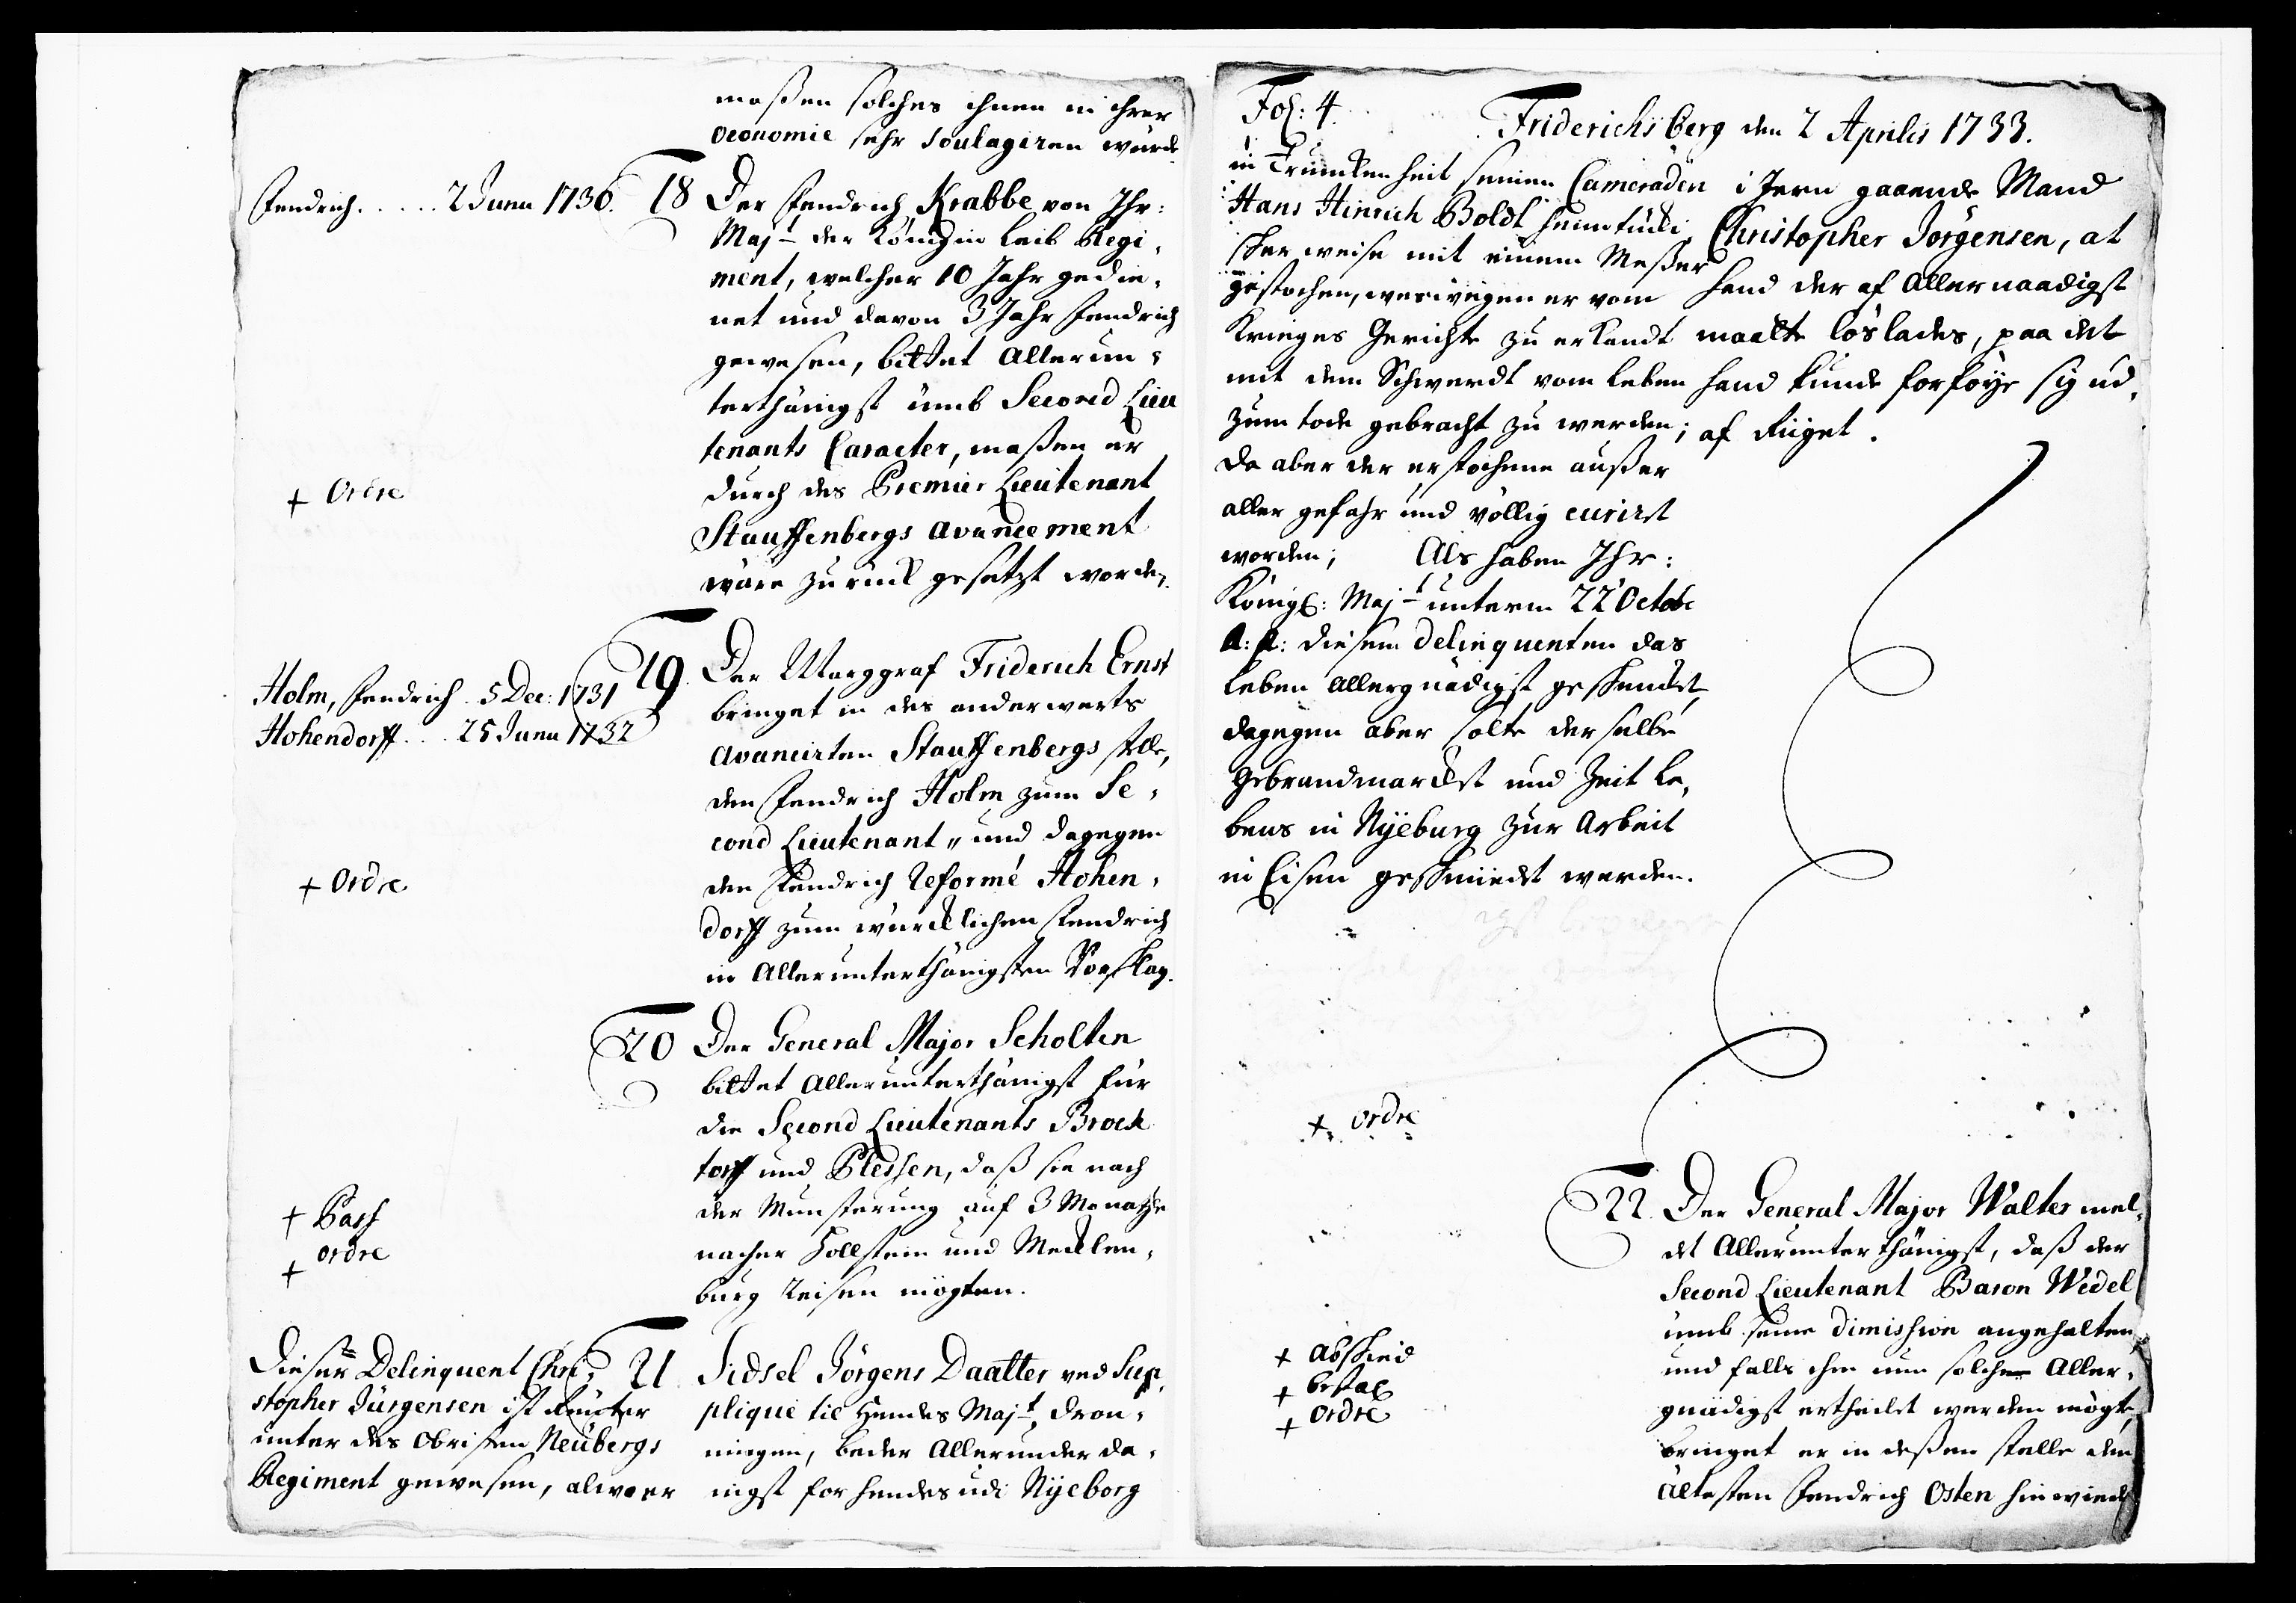 maßen solches ihnen in ihrer
Oeconomie sehr Soulagiren würde
Fendrich. . . . . 2 Junii 1730.
18 Der Fendrich Krabbe von Ihr:
Majt der Königin Leib Regi-
ment, welcher 10 Jahr gedie-
net und davon 3 Jahr Fendrich
gewesen, bittet Allerun-
terthänigst umb Second Lieu
tenants Caracter, maßen er
+ Ordre
durch des Premier Lieutenant
Stauffenbergs Avancement
wäre zurück gesetzt worden.
Holm, Fendrich . 5 Dec: 1731
Hohendorff . . . 25 Junii 1732
19. Der Marggraf Friderich Ernst
bringet in des anderwerts
Avancirten Stauffenbergs stelle,
den Fendrich Holm zum Se-
cond Lieutenant, und dagegen
+ Ordre
den Fendrich Reformé Hohen-
dorff zum würcklichen Fendrich
in Allerunterthänigsten Vorschlag.
20 Der General Major Scholten
bittet Allerunterthänigst für
die Second Lieutenants Brock
torff und Plessen, daß sie nach
der Munsterung auf 3 Monathe
+ Pass
+ ordre
nacher Hollstein und Mecklen-
burg Reisen mögten.
21 Sidsel Jörgens Daatter ved Sup-
plique til Hendes Majt, Dron-
ningen, beder Allerunderda-
nigst for hendes udi Nyeborg
Dieser Delinquent Chri-
stopher Jürgensen ist Reuter
unter des Obristen Neübergs
Regiment gewesen, alwo er
Fol: 4.
Friderichsberg den 2 Aprilis 1733.
in Trunkenheit seinen Cameraden
Hans Hinrich Boldt heimtücki-
scher weise mit einem Meßer
gestochen, weswegen er vom
Krieges Gerichte zu erkandt
mit dem Schwerdt vom Leben
zum tode gebracht zu werden;
da aber der erstochene außer
aller gefahr und völlig curirt
worden; Als haben Ihr:
Königl: Majt unterm 22 Octobr
A: p: diesem Delinquenten das
Leben Allergnädigst geschencket,
dagegen aber solte derselbe
Gebrandmarckt und Zeit Le-
bens in Nyeburg zur Arbeit
in Eisen geschmiedet werden.
i Jern gaaende Mand
Christopher Jörgensen, at
hand der af Allernaadigst
maatte löslades, paa det
hand kunde forföye sig ud-
af Riiget.
+ ordre
22. Der General Major Walter mel-
det Allerunterthänigst, daß der
Second Lieutenant Baron Wedel
umb seine Dimission angehalten,
+ Abscheid
+ bestal
+ Ordre
und falls ihm nun solche Aller-
gnädigst ertheilet werden mögte,
bringet er in deßen stelle den
Ältesten Fendrich Osten hinwieder